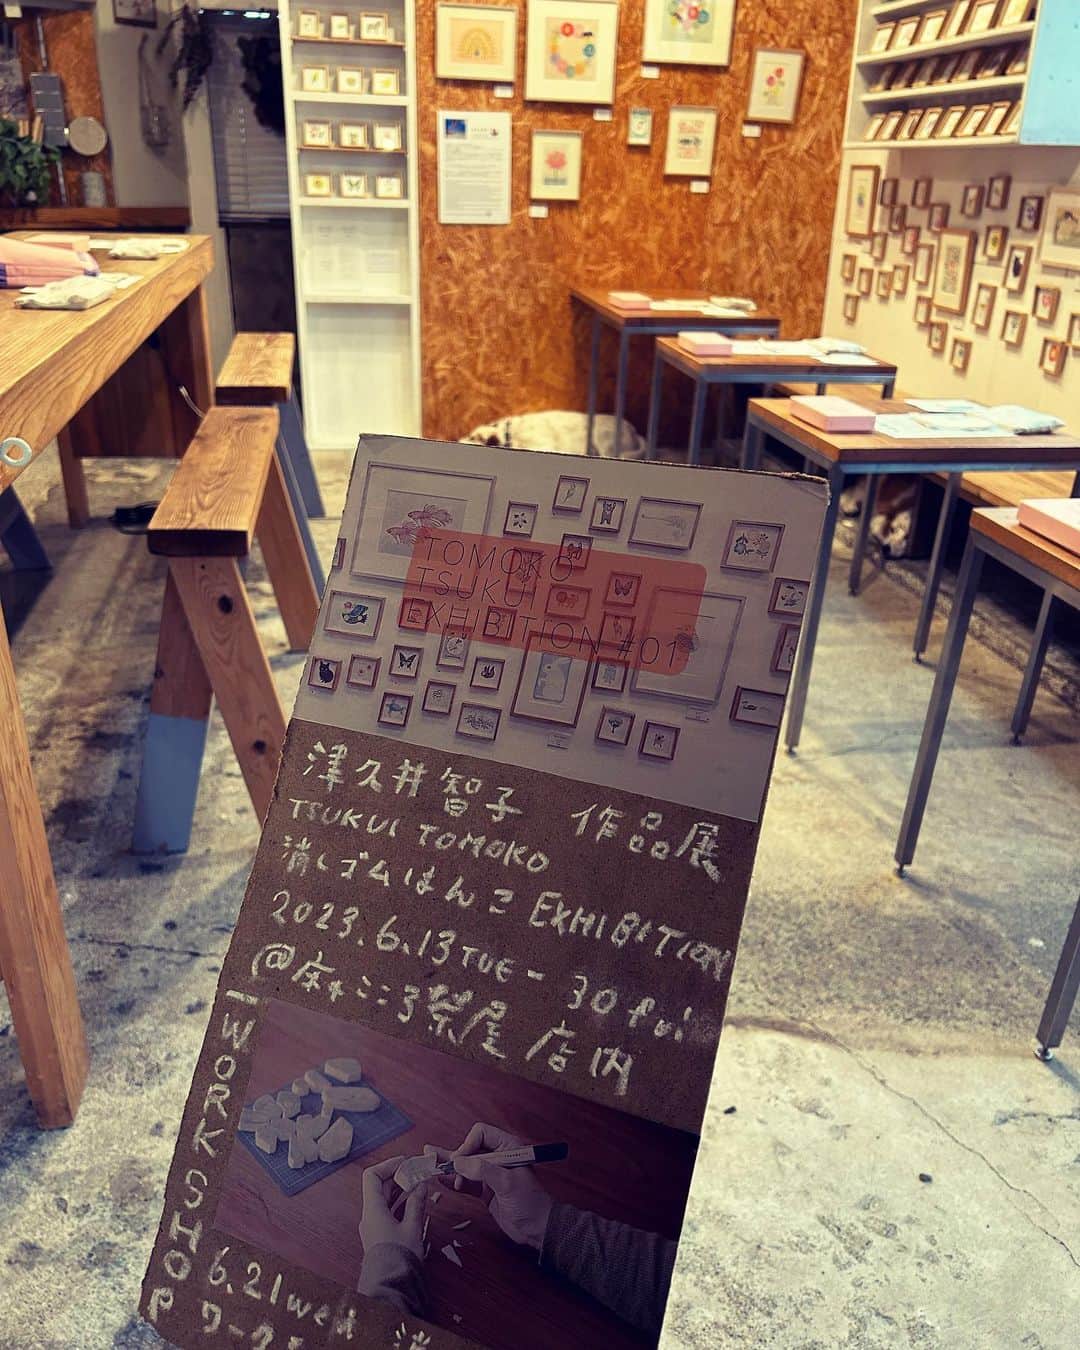 TOMOKO
TSUKUI
EXHIBITION #01
津久井智子 作品展
TSUKUI TOMOKO
消しゴムはんこ EXHIBITION
2023.6.13TUE - 30fri
店内
WORK SHOP
6.21wed 消
ワーク